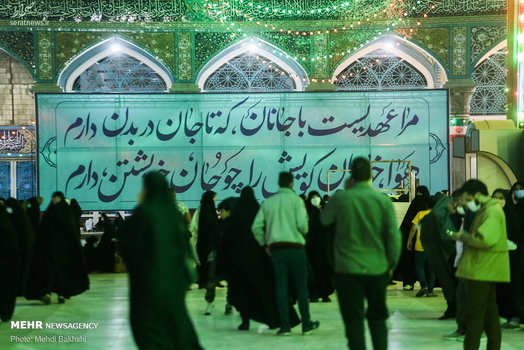 seratnews.ir
مرا عهدیست با جانان، که تا جان در بدن دارم
هواخواهان کویش را چو جان خویشتن دارم،
MEHR NEWSAGENCY
Photo: Mehdi Bakhshi